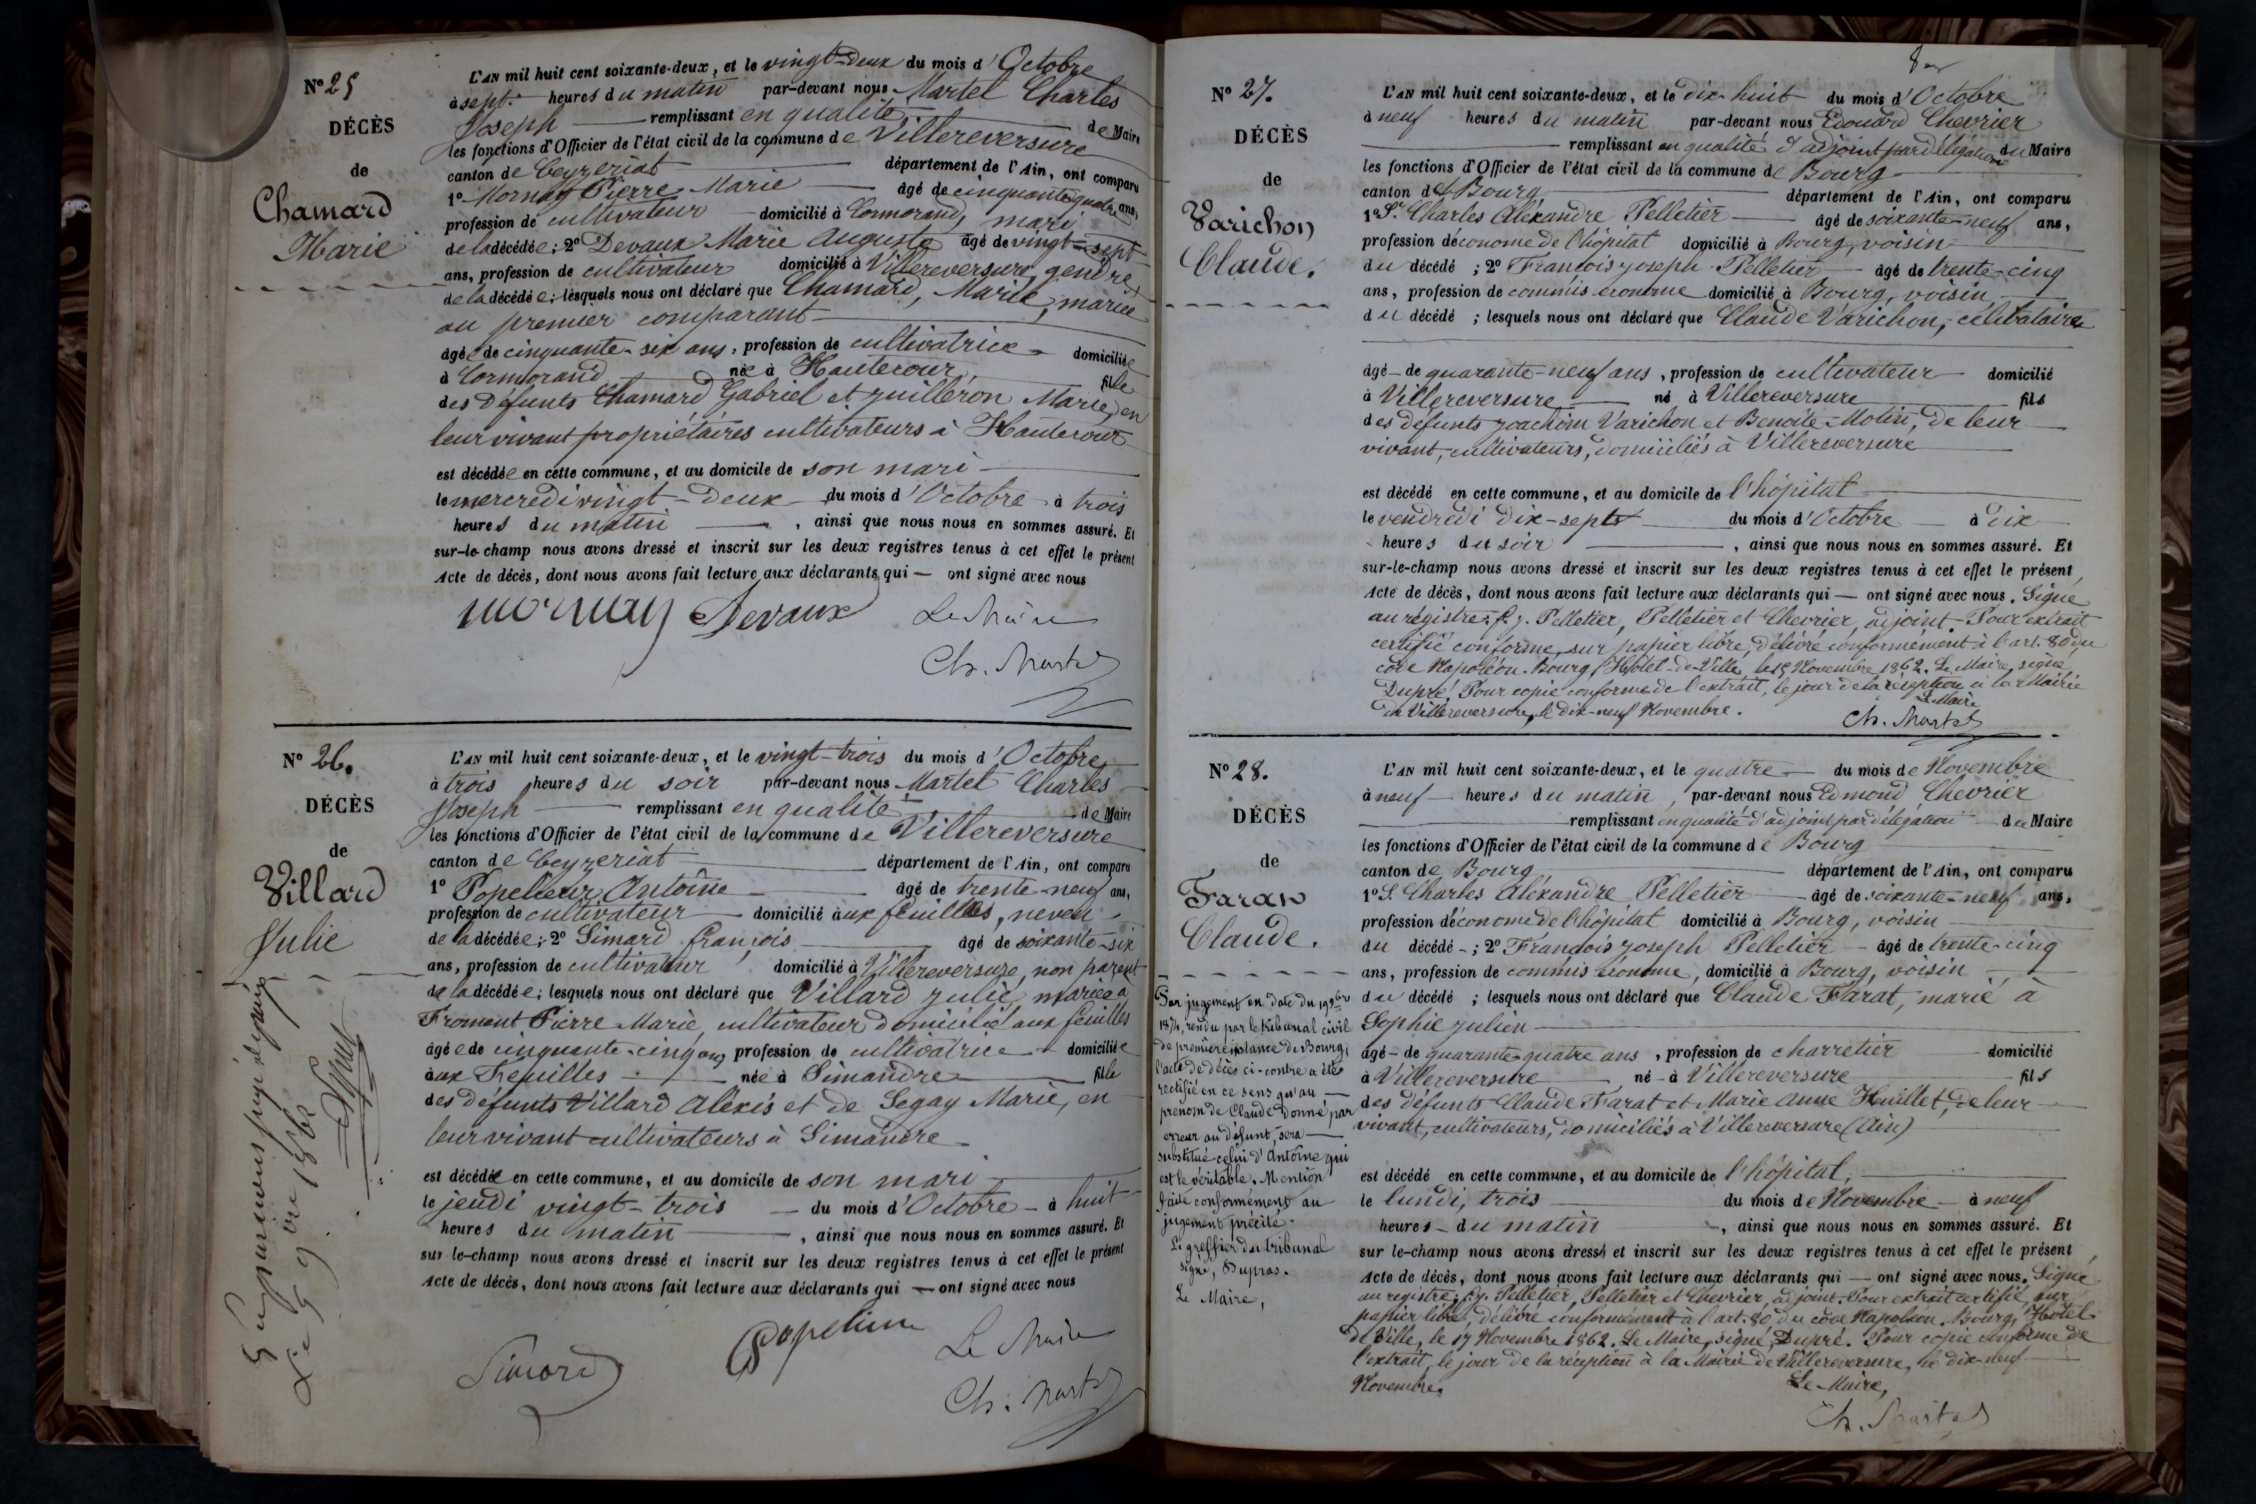 N° 25
DÉCÈS
de
Chamard
Marie
L'AN mil huit cent soixante-deux, et le vingt-deux du mois d'Octobre
à sept heures du matin par-devant nous Martel Charles
Joseph remplissant en qualité de Maire
les fonctions d'Officier de l'état civil de la commune de Villereversure
canton de Ceyzeriat département de l'Ain, ont comparu
1° Mornay Pierre Marie âgé de cinquante quatre ans,
profession de cultivateur domicilié à Cormorand, mari
de la décédée; 2° Devaux Marie Auguste âgé de vingt-sept
ans, profession de cultivateur domicilié à Villereversure, gendre
de la décédée; lesquels nous ont déclaré que Chamard, Marie, mariée
au premier comparant
âgée de cinquante-six ans, profession de cultivatrice domiciliée
à Cormorand née à Hautecour fille
des défunts Chamard Gabriel et Juilleron Marie, en
leur vivant propriétaires cultivateurs à Hautecour
est décédée en cette commune, et au domicile de son mari
le mercredi vingt-deux du mois d'Octobre à trois
heures du matin, ainsi que nous nous en sommes assuré. Et
sur-le-champ nous avons dressé et inscrit sur les deux registres tenus à cet effet le présent
Acte de décès, dont nous avons fait lecture aux déclarants qui — ont signé avec nous
Mornay Devaux Le Maire
Ch. Martel
N° 26.
DÉCÈS
de
Villard
Julie
L'AN mil huit cent soixante-deux, et le vingt-trois du mois d'Octobre
à trois heures du soir par-devant nous Martel Charles
Joseph remplissant en qualité de Maire
les fonctions d'Officier de l'état civil de la commune de Villereversure
canton de Ceyzeriat département de l'Ain, ont comparu
1° Popelieur Antoine âgé de trente-neuf ans,
profession de cultivateur domicilié aux feuilles, neveu
de la décédée; 2° Simard françois âgé de soixante-six
ans, profession de cultivateur domicilié à Villereversure, non parent
de la décédée; lesquels nous ont déclaré que Villard Julie, mariée à
Froment Pierre Marie, cultivateur domicilié aux feuilles
âgée de cinquante-cinq ans, profession de cultivatrice domiciliée
aux Feuilles née à Simandre fille
des défunts Villard Alexis et de Segay Marie, en
leur vivant cultivateurs à Simandre
est décédée en cette commune, et au domicile de son mari
le jeudi vingt-trois du mois d'Octobre à huit
heures du matin, ainsi que nous nous en sommes assuré. Et
sur le-champ nous avons dressé et inscrit sur les deux registres tenus à cet effet le présent
Acte de décès, dont nous avons fait lecture aux déclarants qui — ont signé avec nous
Simard Le Maire
Ch. Martel
Le 5 9bre 1862
N° 27.
DÉCÈS
de
Varichon
Claude.
L'AN mil huit cent soixante-deux, et le dix-huit du mois d'Octobre
à neuf heures du matin par-devant nous Edouard Chevrier
remplissant en qualité d'adjoint par délégation du Maire
les fonctions d'Officier de l'état civil de la commune de Bourg
canton de Bourg département de l'Ain, ont comparu
1° Sr. Charles Alexandre Pelletier âgé de soixante-neuf ans,
profession d'économe de l'hôpital domicilié à Bourg, voisin
du décédé; 2° François Joseph Pelletier âgé de trente-cinq
ans, profession de commis économe domicilié à Bourg, voisin
du décédé; lesquels nous ont déclaré que Claude Varichon, célibataire
âgé de quarante-neuf ans, profession de cultivateur domicilié
à Villereversure né à Villereversure fils
des défunts Joachim Varichon et Benoite Molin, de leur
vivant, cultivateurs, domiciliés à Villereversure
est décédé en cette commune, et au domicile de l'hôpital
le vendredi dix-sept du mois d'Octobre à dix
heures du soir, ainsi que nous nous en sommes assuré. Et
sur-le-champ nous avons dressé et inscrit sur les deux registres tenus à cet effet le présent
Acte de décès, dont nous avons fait lecture aux déclarants qui — ont signé avec nous. Signé
au régistre: f. j. Pelletier, Pelletier et Chevrier, adjoint. Pour extrait
certifié conforme, sur papier libre, délivré conformément à l'art. 80 du
code Napoléon. Bourg, Hôtel-de-Ville, le Novembre 1862. Le Maire, signé
Dupré. Pour copie conforme de l'extrait, le jour de la réception à la Mairie
de Villereversure, le dix-neuf Novembre.
Le Maire
Ch. Martel
N° 28.
DÉCÈS
de
Farat
Claude.
Par jugement en date du 19
1874, rendu par le tribunal civil
de première instance de Bourg,
l'acte de décès ci-contre a été
rectifié en ce sens qu'au
prénom de Claude donné par
erreur au défunt, sera
substitué celui d'Antoine qui
est le véritable. Mention
faite conformément au
jugement précité.
Le greffier du tribunal
signé, Dupras.
Le Maire,
L'AN mil huit cent soixante-deux, et le quatre du mois de Novembre
à neuf heures du matin, par-devant nous Edmond Chevrier
remplissant en qualité d'adjoint par délégation du Maire
les fonctions d'Officier de l'état civil de la commune de Bourg
canton de Bourg département de l'Ain, ont comparu
1° S. Charles Alexandre Pelletier âgé de soixante-neuf ans,
profession d'économe de l'hôpital domicilié à Bourg, voisin
du décédé; 2° François Joseph Pelletier âgé de trente-cinq
ans, profession de commis économe, domicilié à Bourg, voisin
du décédé; lesquels nous ont déclaré que Claude Farat, marié à
Sophie Julien
âgé de quarante-quatre ans, profession de charretier domicilié
à Villereversure né à Villereversure fils
des défunts Claude Farat et Marie Anne Huillet, de leur
vivant, cultivateurs, domiciliés à Villereversure (Ain)
est décédé en cette commune, et au domicile de l'hôpital,
le lundi, trois du mois de Novembre à neuf
heures du matin, ainsi que nous nous en sommes assuré. Et
sur le-champ nous avons dressé et inscrit sur les deux registres tenus à cet effet le présent
Acte de décès, dont nous avons fait lecture aux déclarants qui — ont signé avec nous. Signé
au registre: f. j. Pelletier, Pelletier et Chevrier, adjoint. Pour extrait certifié sur
papier libre, délivré conformément à l'art. 80 du code Napoléon. Bourg, Hôtel
de Ville, le 17 Novembre 1862. Le Maire, signé, Dupré. Pour copie conforme de
l'extrait, le jour de la réception à la Mairie de Villereversure, le dix-neuf
Novembre.
Le Maire,
Ch. Martel